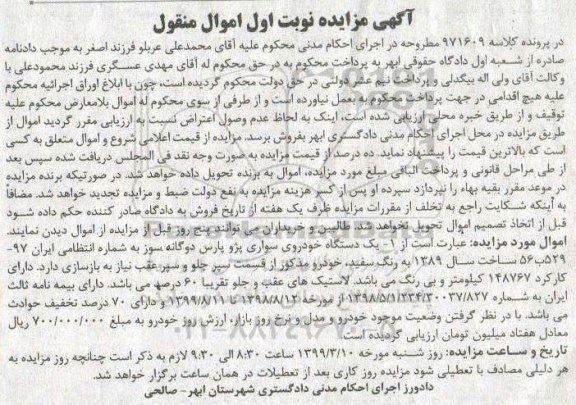 آگهی مزایده نوبت اول اموال منقول
در پرونده کلاسه ۹۷۱۶۰۹ مطروحه در اجرای احکام مدنی محکوم علیه آقای محمدعلی عربلو فرزند اصغر به موجب دادنامه
صادره از شعبه اول دادگاه حقوقی ابهر به پرداخت محکوم به در حق محکوم له آقای مهدی عسگری فرزند محمودعلی با
وکالت آقای ولی اله بیگدلی و پرداخت نیم عشر دولتی در حق دولت محکوم گردیده است، چون با ابلاغ اوراق اجرائیه محکوم
علیه هیچ اقدامی در جهت پرداخت محکوم به بعمل نیاورده است و از طرفی از سوی محکوم له اموال بلامعارض محکوم علیه
توقیف و از طریق خبره محلی ارزیابی شده است، اینک به لحاظ عدم وصول اعتراض نسبت به ارزیابی مقرر گردید اموال از
طریق مزایده در محل اجرای احکام مدنی دادگستری ابهر بفروش برسد. مزایده از قیمت اعلامی شروع و اموال متعلق به کسی
است که بالاترین قیمت را پیشنهاد نماید. ده درصد از قیمت مزایده به صورت وجه نقد فی المجلس دریافت شده سپس بعد
از طی مراحل قانونی و پرداخت الباقی مبلغ مورد مزایده، اموال به برنده تحویل داده خواهد شد. در صورتیکه برنده مزایده
در موعد مقرر بقیه بهاء را نپردازد سپرده او پس از کسر هزینه مزایده به نفع دولت ضبط و مزایده تجدید خواهد شد. مضافاً
به آینکه شکایت راجع به تخلف از مقررات مزایده ظرف یک هفته از تاریخ فروش به دادگاه صادر کننده حکم داده شود
قبل از اتخاذ تصمیم اموال تحویل نخواهد شد. طالبین و خریداران می توانند پنج روز قبل از مزایده از اموال دیدن نمایند.
اموال مورد مزایده: عبارت است از ۱- یک دستگاه خودروی سواری پژو پارس دوگانه سوز به شماره انتظامی ایران ۹۷-
۵۲۹ب۵۶ ساخت سال ۱۳۸۹ به رنگ سفید، خودرو مذکور از قسمت سپر جلو و سپر عقب نیاز به بازسازی دارد. دارای
کارکرد ۱۴۸۷۶۷ کیلومتر و بی رنگ می باشد. لاستیک های عقب و جلو تقریبا ۶۰ درصد می باشد. دارای بیمه نامه ثالث
ایران به شماره ۱۳۹۸/۵/۱۲۳۴/۳۰۰۳۷/۸۲۷ از مورخه ۱۳۹۸/۸/۱۲ تا ۱۳۹۹/۸/۱۱ و دارای ۷۰ درصد تخفیف حوادث
می باشد. با در نظر گرفتن وضعیت موجود خودرو و مدل و نرخ روز بازار، ارزش روز خودرو به مبلغ ۷۰۰/۰۰۰/۰۰۰ ریال
معادل هفتاد میلیون تومان ارزیابی گردیده است.
تاریخ و ساعت مزایده: روز شنبه مورخه ۱۳۹۹/۳/۱۰ ساعت ۸:۳۰ الی ۹:۳۰ لازم به ذکر است چنانچه روز مزایده به
هر دلیلی مصادف با تعطیلی شود مزایده روز کاری بعد از تعطیلات در همان ساعت برگزار خواهد شد.
دادورز اجرای احکام مدنی دادگستری شهرستان ابهر- صالحی